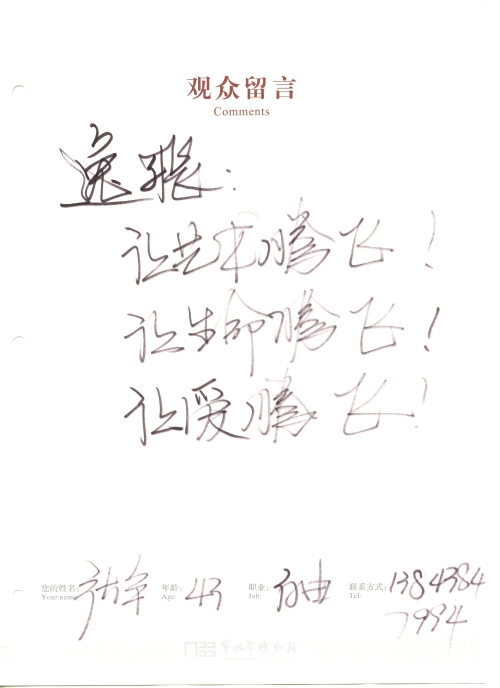 观众留言
Comments
逸飛:
让艺术腾飞!
让生命腾飞!
让爱腾飞!
您的姓名: 年龄: 43 职业: 自由 联系方式: 1384384
Your name: Age: Job: Tel: 7994
宁波帮博物馆